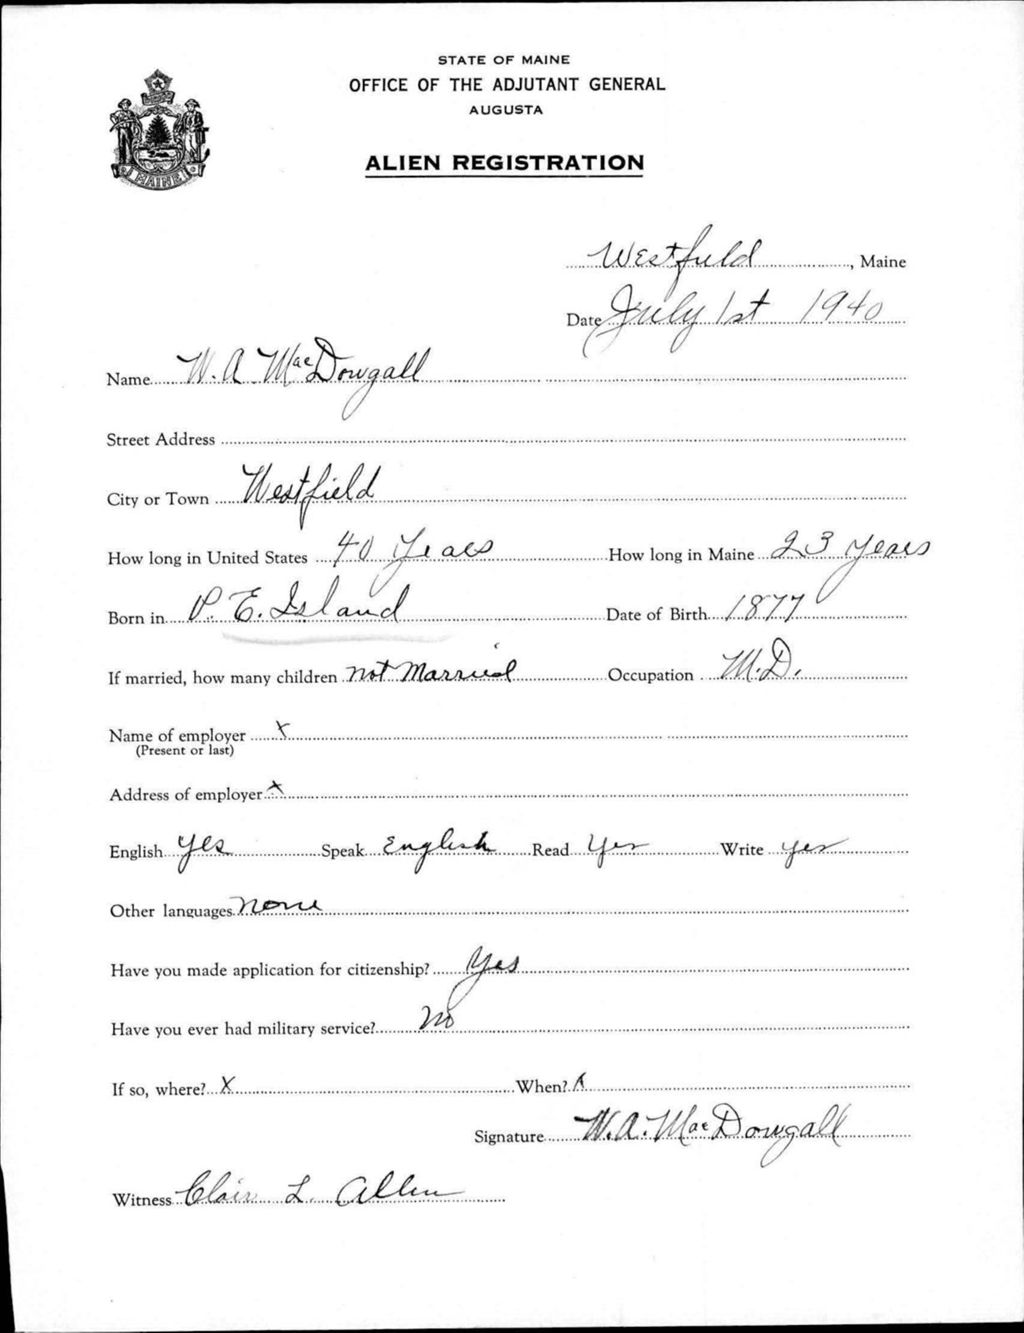 STATE OF MAINE
OFFICE OF THE ADJUTANT GENERAL
AUGUSTA
ALIEN REGISTRATION
MAINE
Westfield, Maine
Date July 1st 1940
Name W. A MacDougall
Street Address
City or Town Westfield
How long in United States 40 Years How long in Maine 23 years
Born in P. E. Island Date of Birth 1877
If married, how many children not Married Occupation M.D.
Name of employer x
(Present or last)
Address of employer x
English yes Speak English Read Yes Write yes
Other languages none
Have you made application for citizenship? Yes
Have you ever had military service? No
If so, where? X When? X
Signature W.A. MacDougall
Witness Clair L. Allen